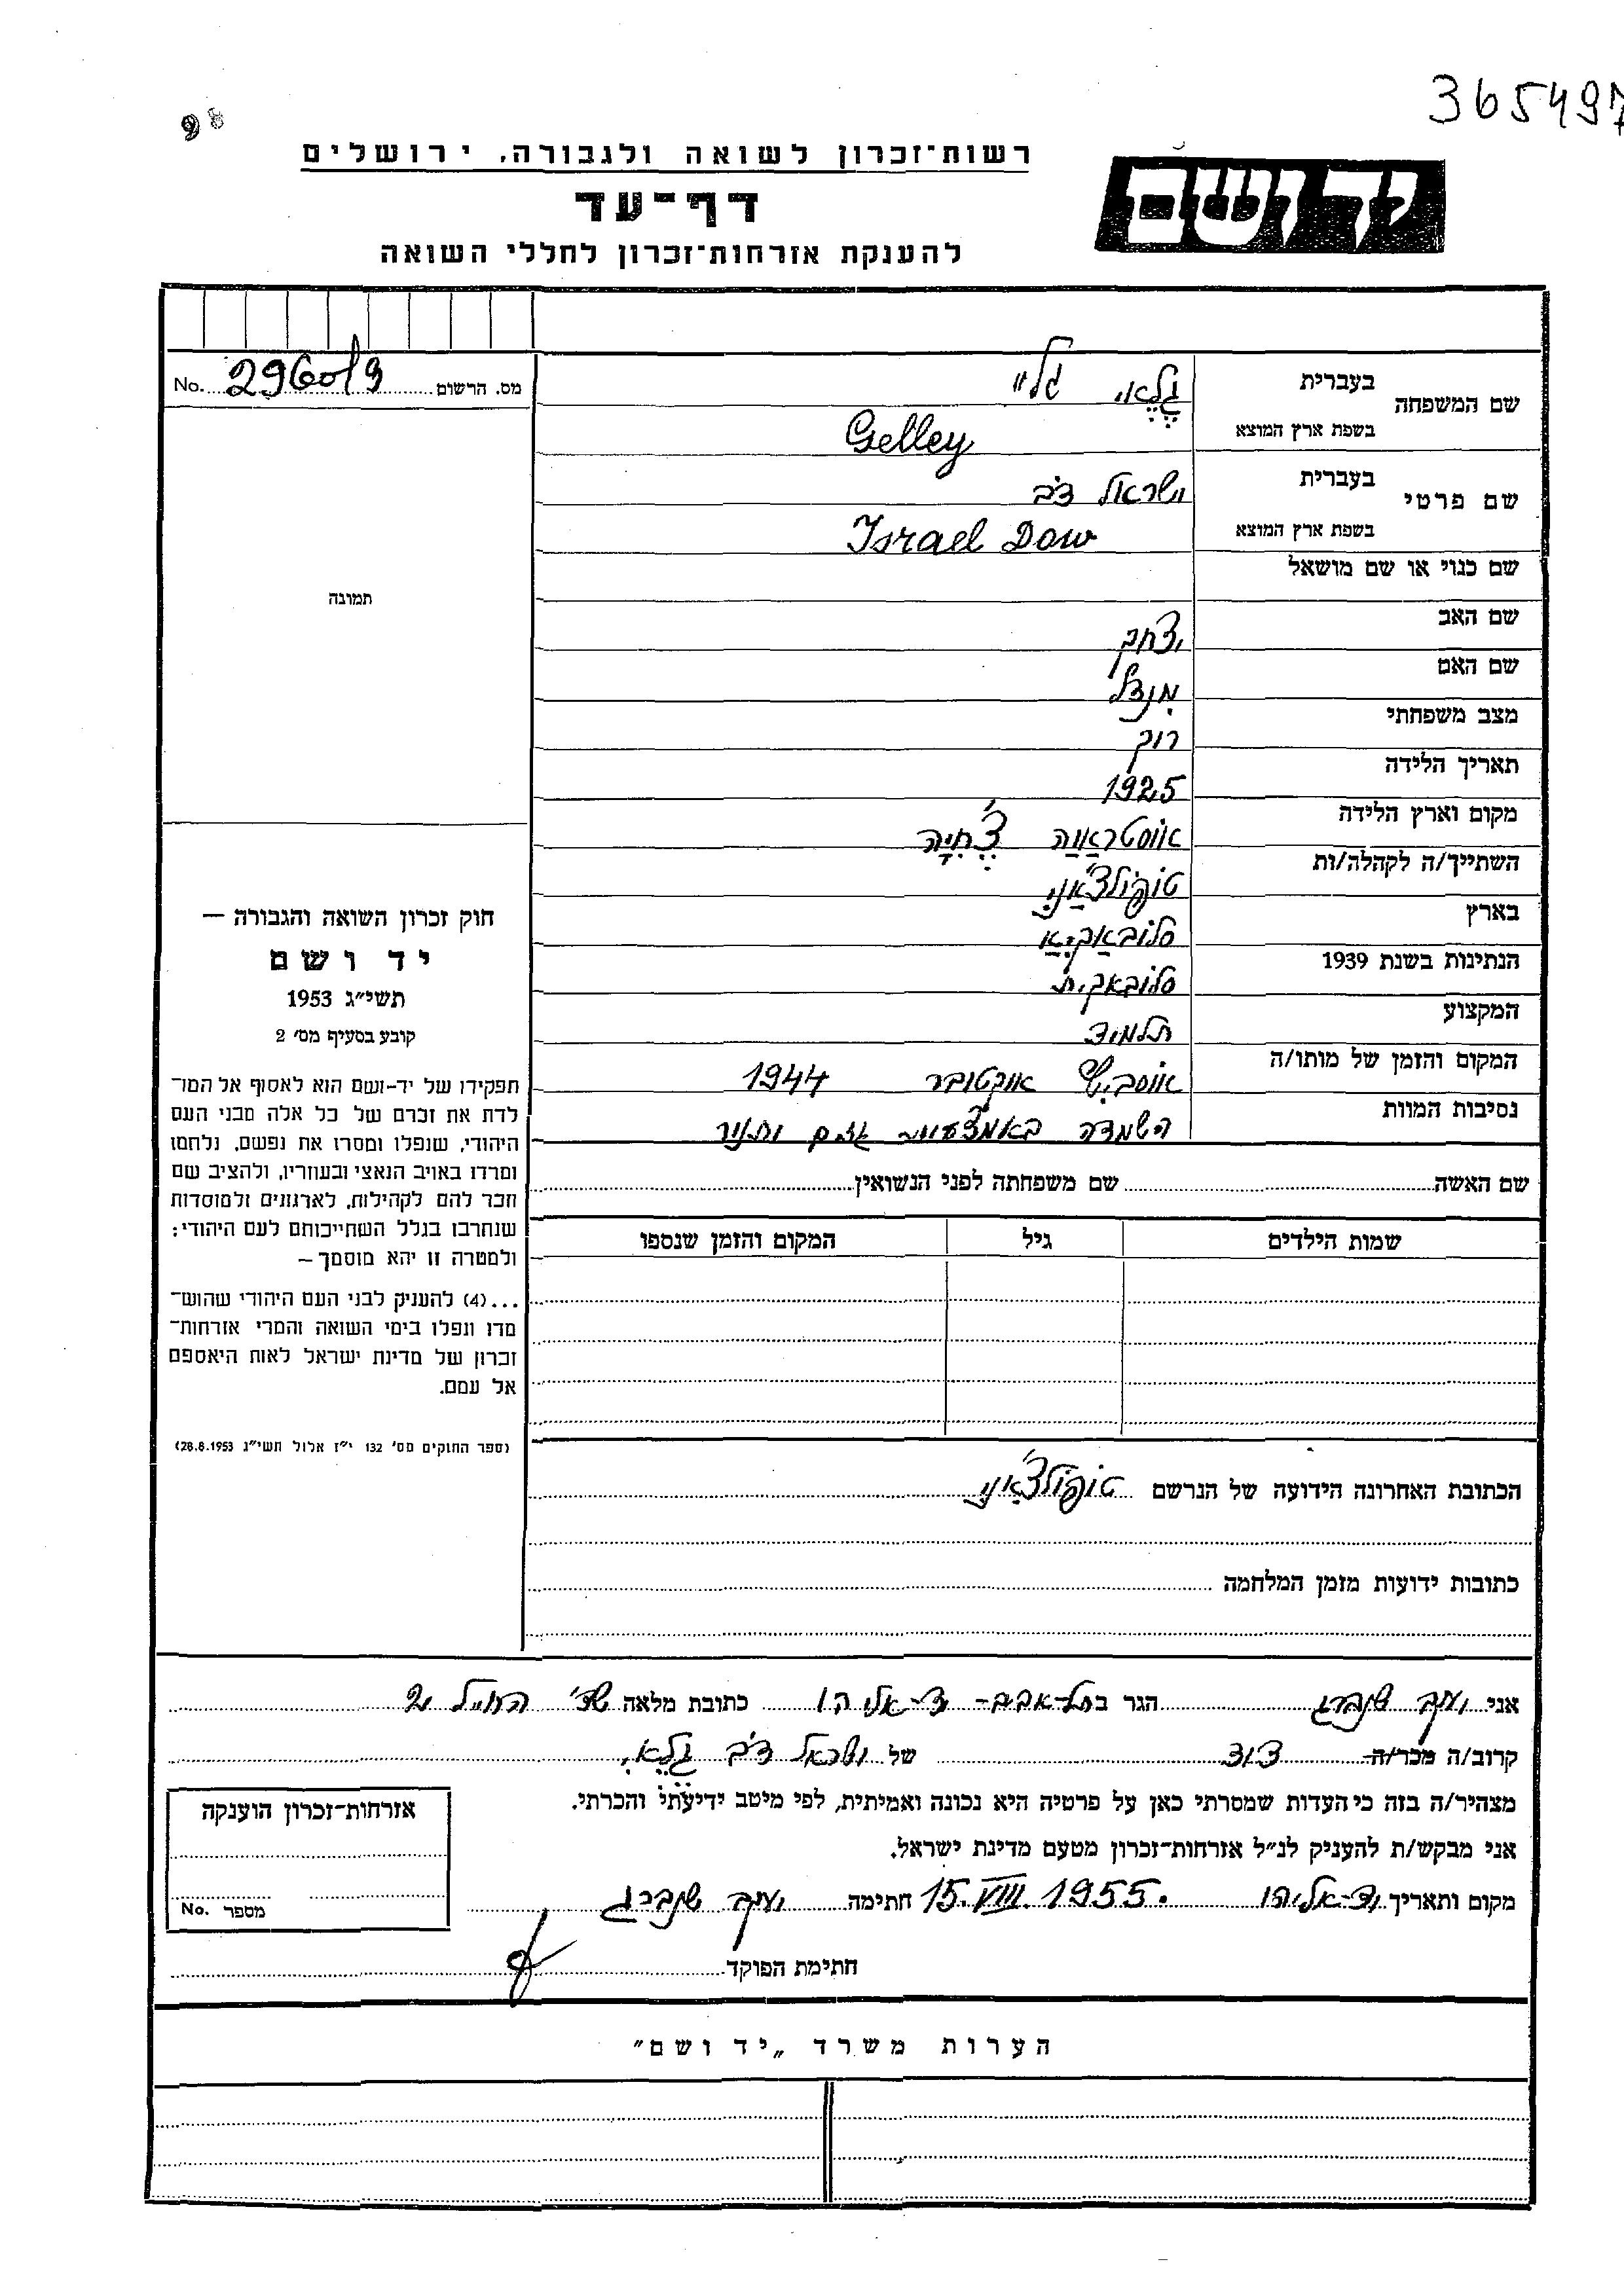 365497
98
רשות־זכרון לשואה ולגבורה, ירושלים
יד ושם
דף־עד
להענקת אזרחות־זכרון לחללי השואה
מס. הרשום 29609 No.
שם המשפחה
בעברית גֶלֶאי גליי
בשפת ארץ המוצא Gelley
שם פרטי
בעברית ישראל דב
בשפת ארץ המוצא Israel Dow
שם כנוי או שם מושאל
שם האב יצחק
שם האם מינדל
מצב משפחתי רוק
תאריך הלידה 1925
מקום וארץ הלידה אוסטראַוַה צ'ֶחִיָה
השתייך/ה לקהלה/ות טופולצ'אַני
בארץ סלובאַקיאַ
הנתינות בשנת 1939 סלובאקית
המקצוע תלמיד
המקום והזמן של מותו/ה אוסביץ אוקטובר 1944
נסיבות המוות השמדה באמצעות גזים ותנור
שם האשה שם משפחתה לפני הנשואין
שמות הילדים גיל המקום והזמן שנספו
הכתובת האחרונה הידועה של הנרשם טופולצ'אַני
כתובות ידועות מזמן המלחמה
תמונה
חוק זכרון השואה והגבורה —
יד ושם
תשי״ג 1953
קובע בסעיף מס׳ 2
תפקידו של יד-ושם הוא לאסוף אל המו־
לדת את זכרם של כל אלה מבני העם
היהודי, שנפלו ומסרו את נפשם, נלחמו
ומרדו באויב הנאצי ובעוזריו, ולהציב שם
וזכר להם לקהילות, לארגונים ולמוסדות
שנחרבו בגלל השתייכותם לעם היהודי;
ולמטרה זו יהא מוסמך —
...(4) להעניק לבני העם היהודי שהוש־
מדו ונפלו בימי השואה והמרי אזרחות־
זכרון של מדינת ישראל לאות היאספם
אל עמם.
(ספר החוקים מס׳ 132 י״ז אלול תשי״ג 28.8.1953)
אני יעקב שנברג הגר בתל-אביב- יד-אליהו כתובת מלאה שד' החייל 2
קרוב/ה מכר/ה דוד של ישראל דב גֶלֶאי
מצהיר/ה בזה כי העדות שמסרתי כאן על פרטיה היא נכונה ואמיתית, לפי מיטב ידיעתי והכרתי.
אני מבקש/ת להעניק לנ״ל אזרחות־זכרון מטעם מדינת ישראל.
מקום ותאריך יד-אליהו 15.VIII.1955. חתימה יעקב שנברג
חתימת הפוקד
אזרחות־זכרון הוענקה
מספר No.
הערות משרד „יד ושם״